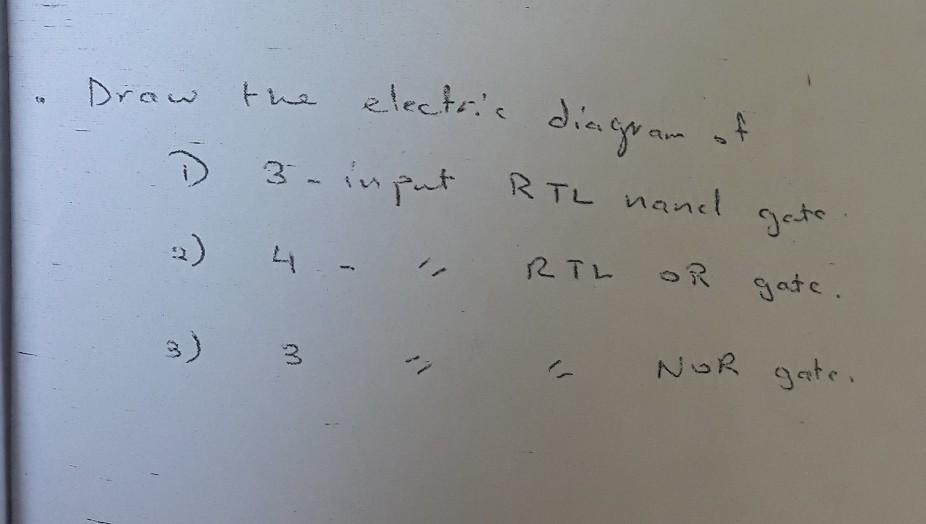 . Draw the electric diagram of
1) 3 - input RTL nand gate.
2) 4 - " RTL OR gate.
3) 3 " " NOR gate.